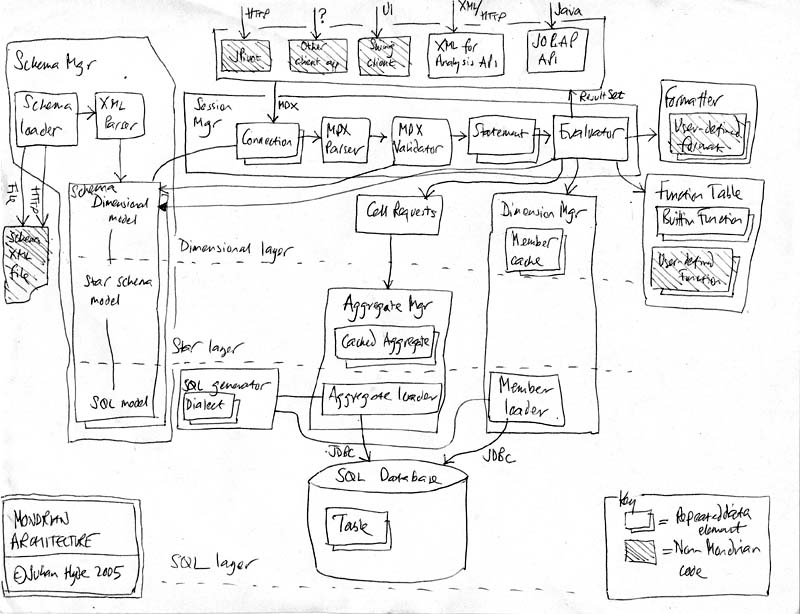 HTTP
?
UI
XML/
HTTP
Java
JPivot
Other
client app
Swing
client
XML for
Analysis API
JOLAP
API
Schema Mgr
Schema
loader
XML
Parser
File
HTTP
Schema
XML
file
Session
Mgr
MDX
Connection
MDX
Parser
MDX
Validator
Statement
Evaluator
ResultSet
Formatter
User-defined
format
Function Table
Builtin Function
User-defined
Function
Schema
Dimensional
model
Star schema
model
SQL model
Cell Requests
Dimension Mgr
Member
cache
Dimensional layer
Aggregate Mgr
Cached Aggregate
Star layer
SQL generator
Dialect
Aggregate loader
Member
loader
JDBC
JDBC
SQL Database
SQL layer
MONDRIAN
ARCHITECTURE
© Julian Hyde 2005
Key
= Repeated data
element
= Non Mondrian
code